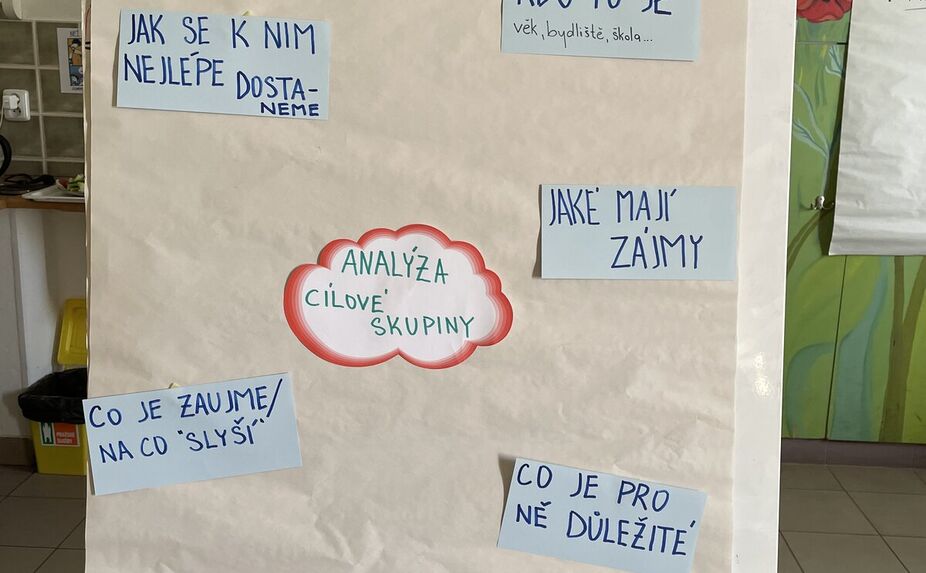 JAK SE K NIM
NEJLÉPE DOSTA-
NEME
KDO TO JE
věk, bydliště, škola...
JAKÉ MAJÍ
ZÁJMY
ANALÝZA
CÍLOVÉ
SKUPINY
CO JE ZAUJME/
NA CO "SLYŠÍ"
CO JE PRO
NĚ DŮLEŽITÉ